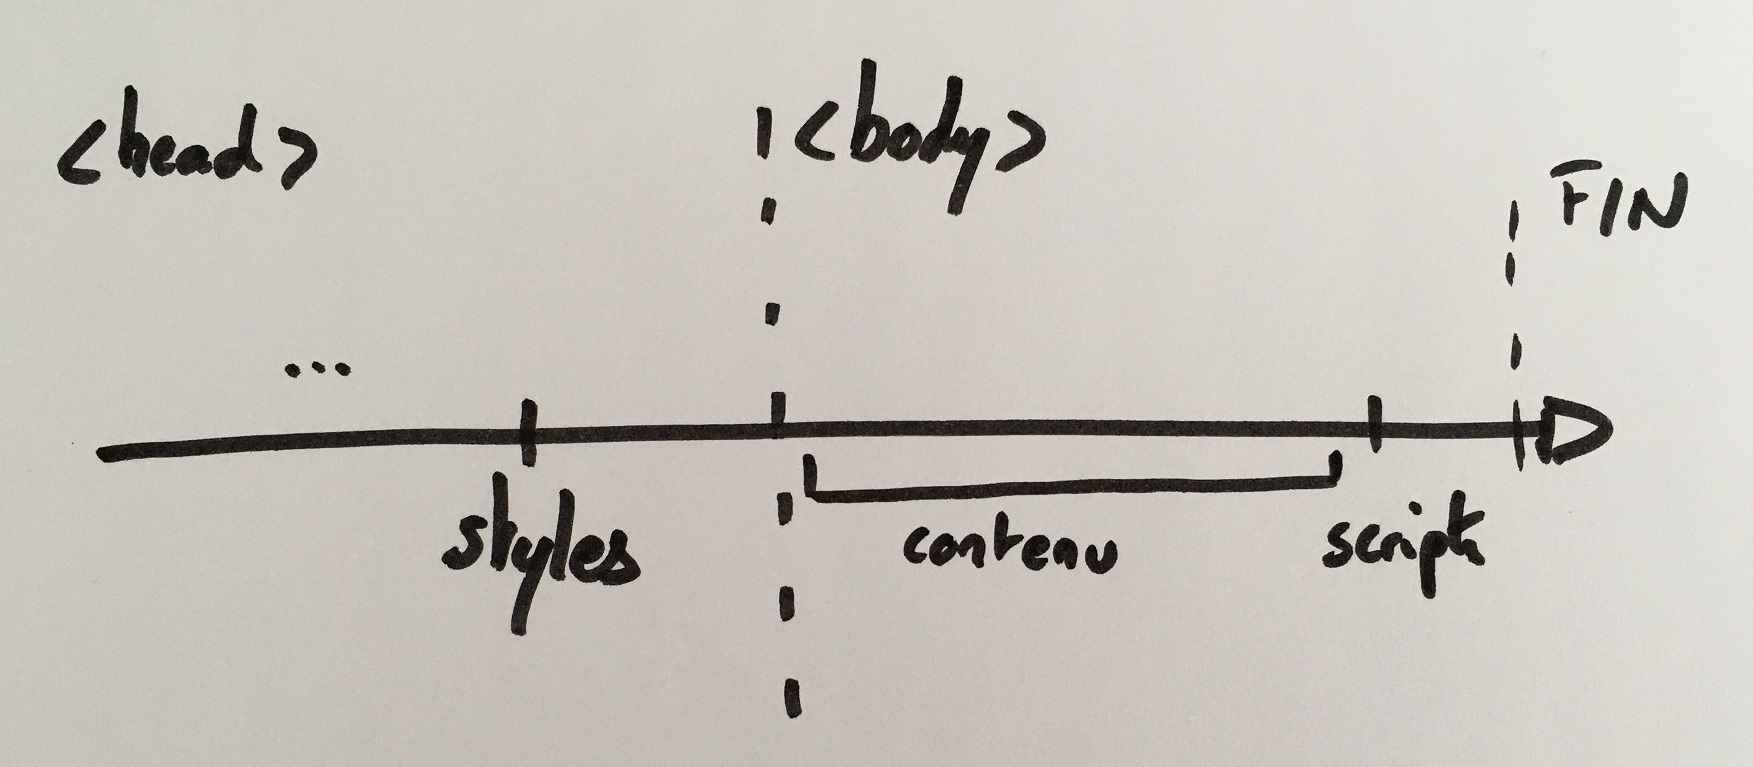 <head>
<body>
FIN
...
styles
contenu
script